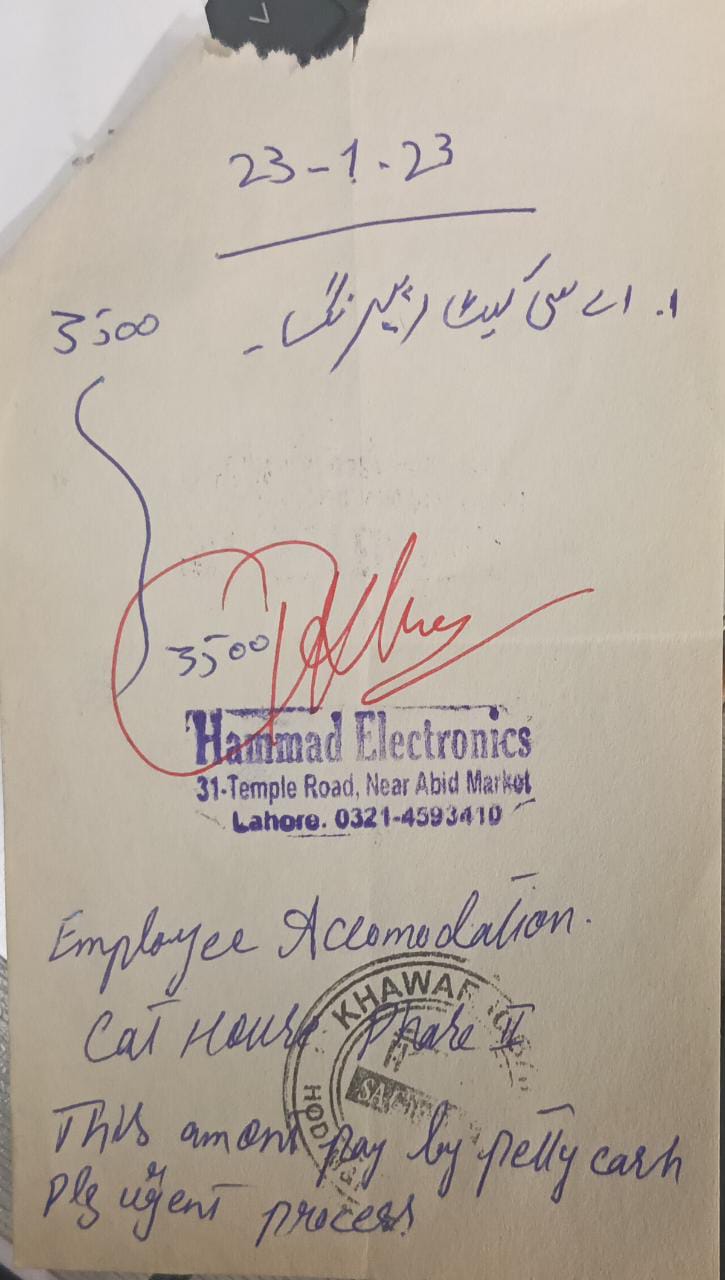 23-1-23
1. اے سی کیٹ رئپیرنگ - 3500
3500
Hammad Electronics
31-Temple Road, Near Abid Market
Lahore. 0321-4593410
Employee Accomodation.
KHAWAR
Cat House Phase II
HOD
This amont pay by petty cash
Plz urgent process